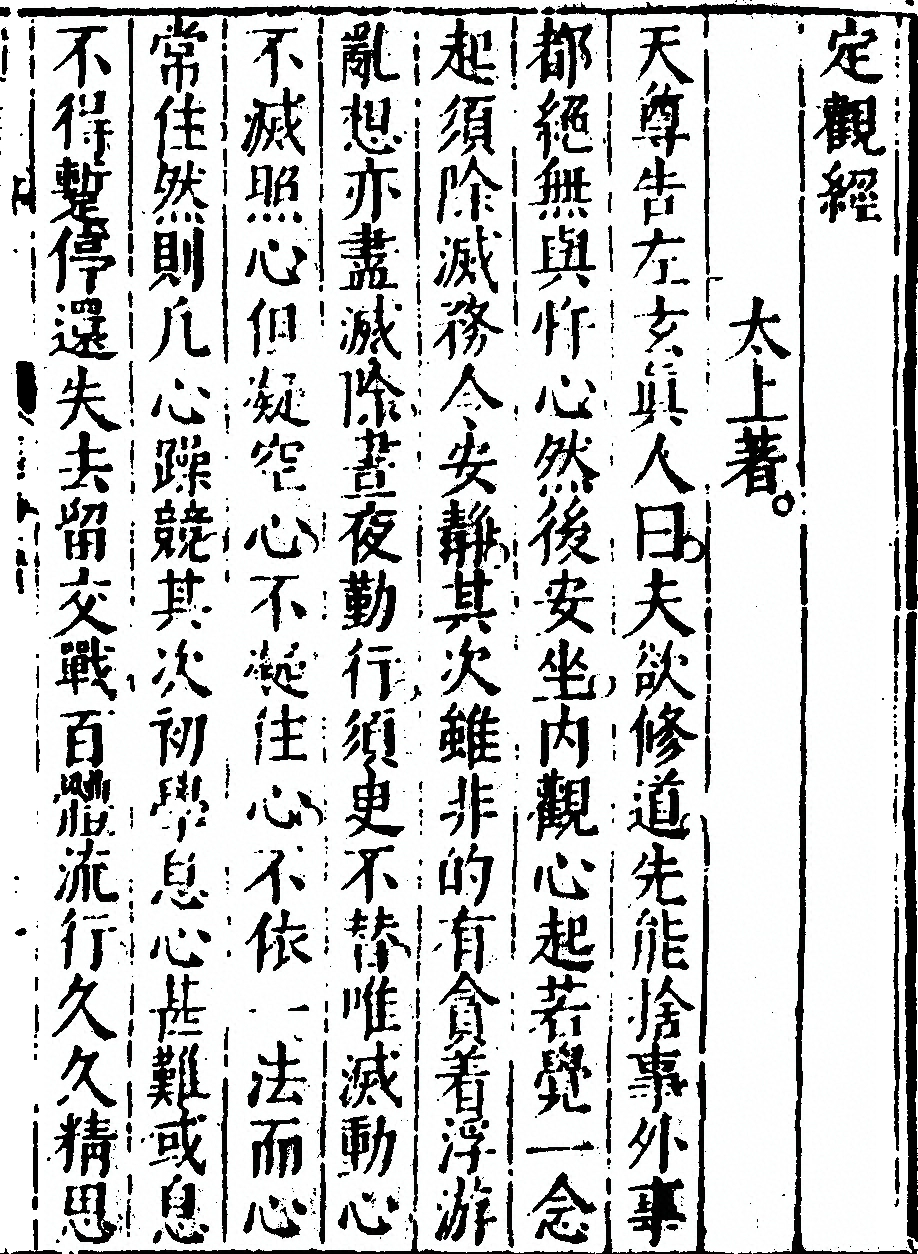 定觀經
太上著
天尊告左玄眞人曰夫欲修道先能捨事外事
都絕無與忤心然後安坐内觀心起若覺一念
起須除滅務令安静其次雖非的有貪着浮游
亂想亦盡滅除晝夜勤行須㬰不替唯滅動心
不滅照心但凝空心不凝住心不依一法而心
常住然則凡心躁競其次初學息心甚難或息
不得暫停還失去留交戰百體流行久久精思